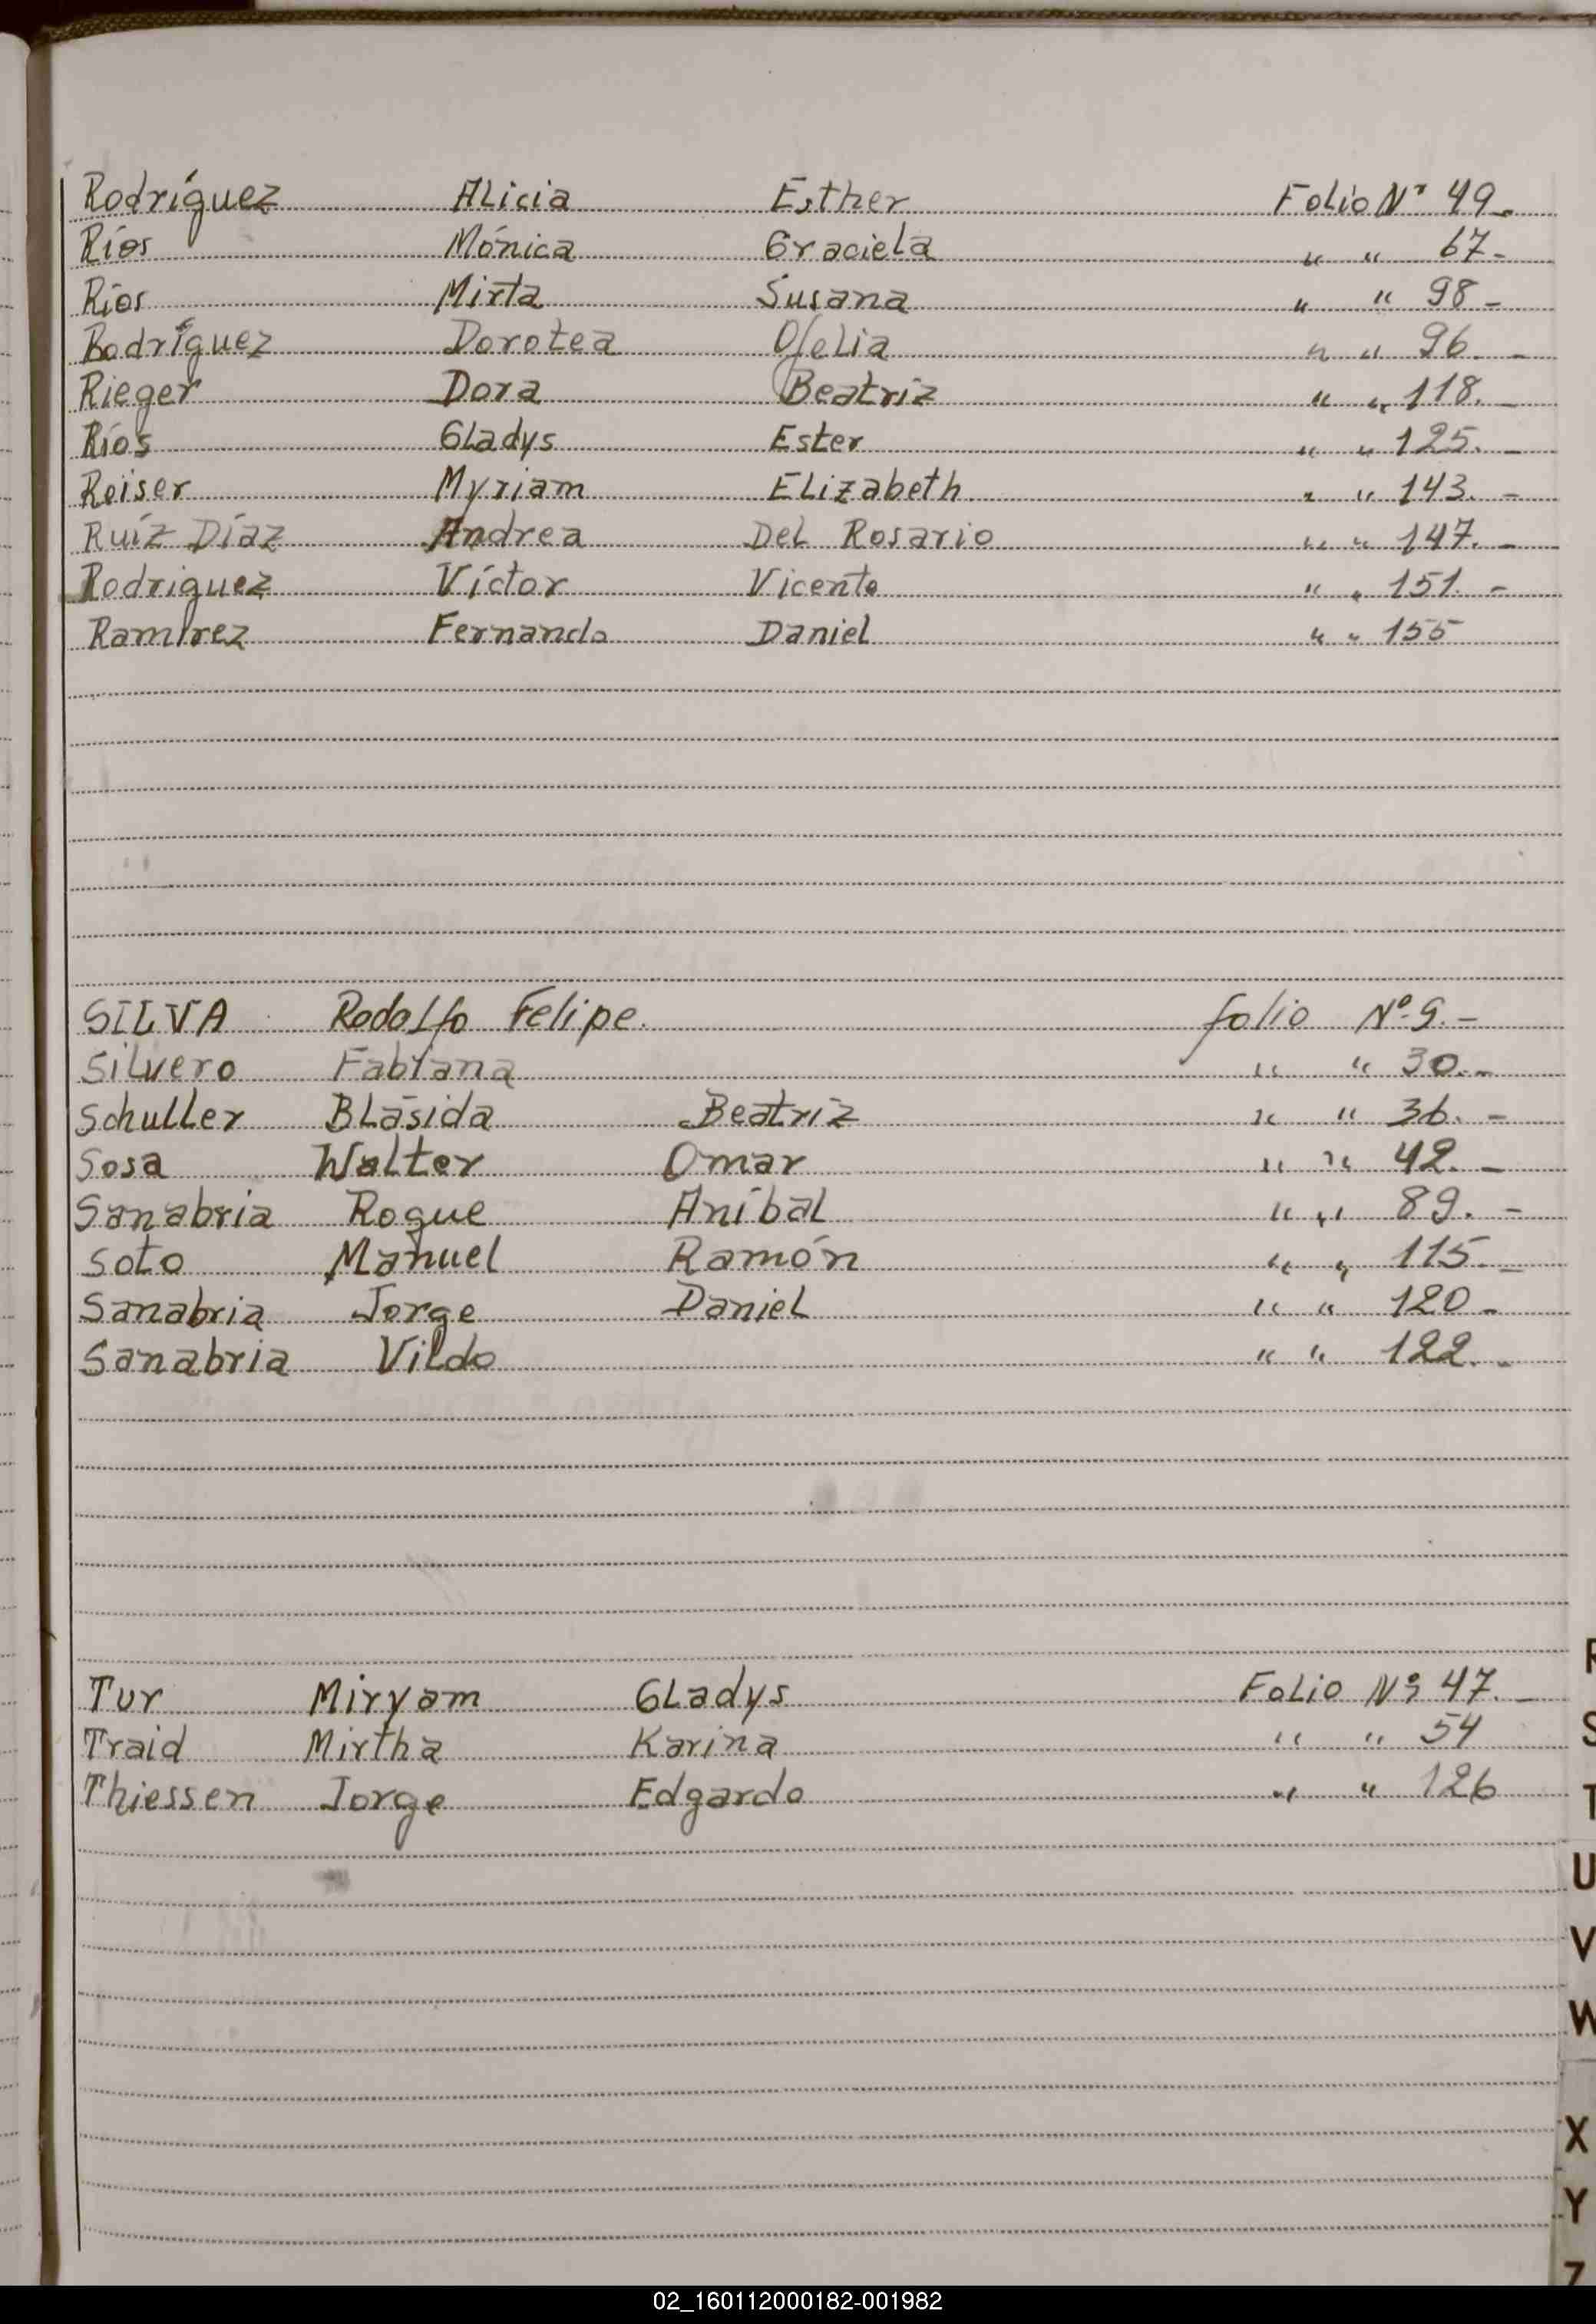 Rodríguez Alicia Esther Folio N° 49.-
Ríos Mónica Graciela " " 67-
Ríos Mirta Susana " " 98-
Rodríguez Dorotea Ofelia " " 96.-
Rieger Dora Beatriz " " 118.-
Ríos Gladys Ester " " 125.-
Reiser Myriam Elizabeth " " 143.-
Ruíz Díaz Andrea Del Rosario " " 147.-
Rodriguez Víctor Vicente " " 151.-
Ramírez Fernando Daniel " " 155
SILVA Rodolfo Felipe. folio Nº 9.-
Silvero Fabiana " " 30.-
Schuller Blásida Beatriz " " 36.-
Sosa Walter Omar " " 42.-
Sanabria Roque Aníbal " " 89.-
Soto Manuel Ramón " " 115.-
Sanabria Jorge Daniel " " 120-
Sanabria Vildo " " 122.-
Tur Miryam Gladys Folio Nº 47.-
Traid Mirtha Karina " " 54
Thiessen Jorge Edgardo " " 126
R
S
T
U
V
W
X
Y
Z
02_160112000182-001982